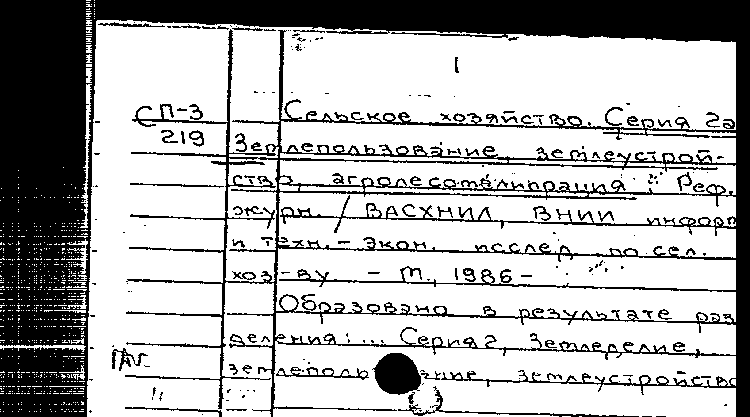 1
СП-3
219
Сельское хозяйство. Серия 2а
Землепользование, землеустрой-
ство, агролесомелиорация : Реф.
журн. / ВАСХНИЛ, ВНИИ информ
и техн.-экон. исслед. по сел.
хоз-ву. - М., 1986-
Образовано в результате раз
деления: ... Серия 2, Земледелие,
землепользование, землеустройство